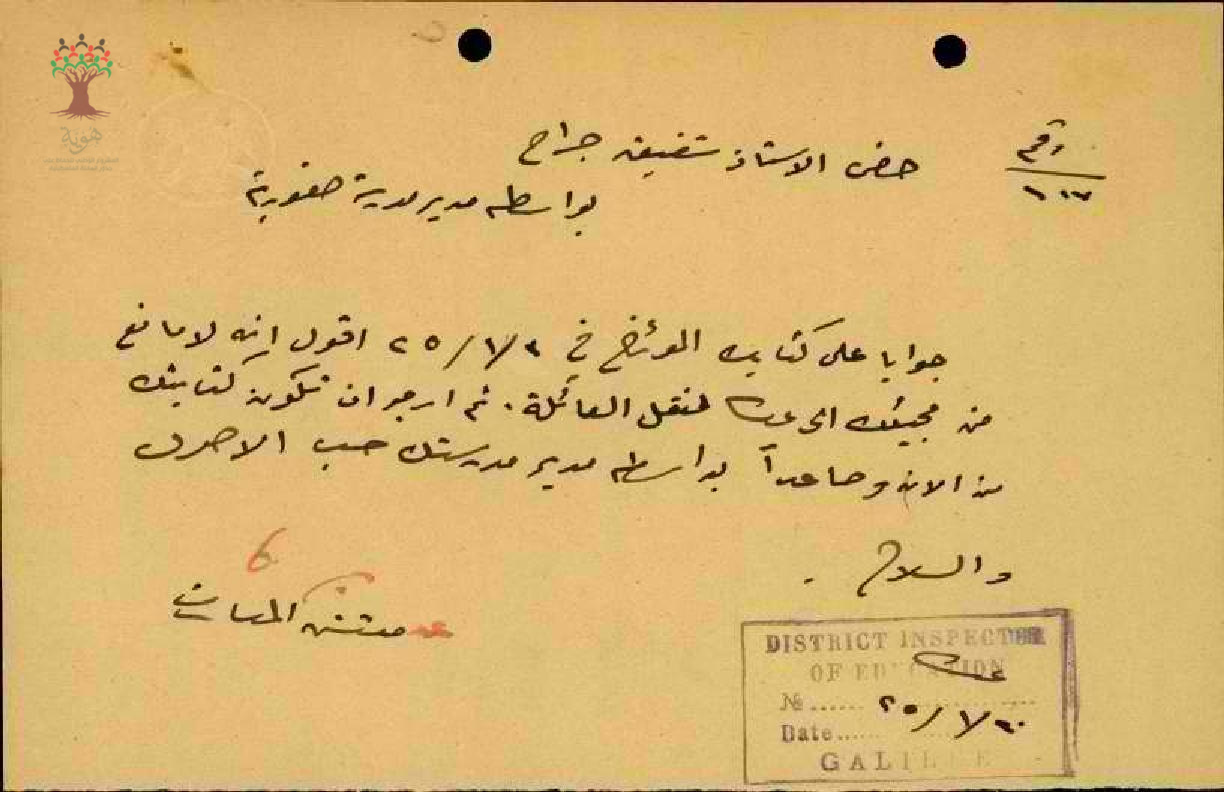 هوية
رقم
١٠٧
حضرة الاستاذ شفيق جراح
بواسطة مدير مدرسة صفورية
جوابا على كتابك المؤرخ في ٢٥/١/٢ اقول انه لا مانع
من مجيئك الى عكا لنقل العائلة. ثم ارجو ان تكون كتابتك
من الان وصاعداً بواسطة مدير مدرستك حسب الاصول
والسلام .
مفتش المعارف
DISTRICT INSPECTOR
OF EDUCATION
عكا
№
Date ٢٥/١/٣٠
GALILEE